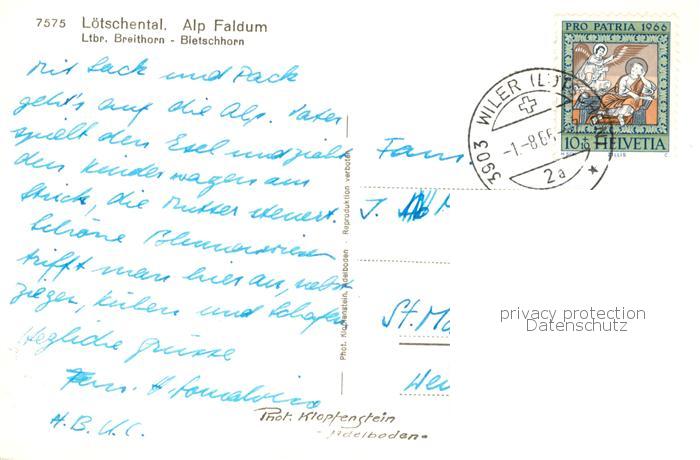 7575 Lötschental. Alp Faldum
Ltbr. Breithorn - Bietschhorn
Mit Sack und Pack
geht's auf die Alp. Vater
spielt den Esel und zieht
den Kinderwagen am
Strick, die Mutter steuert.
Schöne Blumenwiesen
trifft man hier an, nebst
Ziegen, Kühen und Schafen
Herzliche Grüsse
Fam. H.
H.B.U.C.
Phot. Klopfenstein, Adelboden · Reproduktion verboten
Phot. Klopfenstein
- Adelboden -
PRO PATRIA 1966
10+10 HELVETIA
3903 WILER (LÖ
-1.-8.66.
2a
Fam
J.
St. Ma
privacy protection
Datenschutz